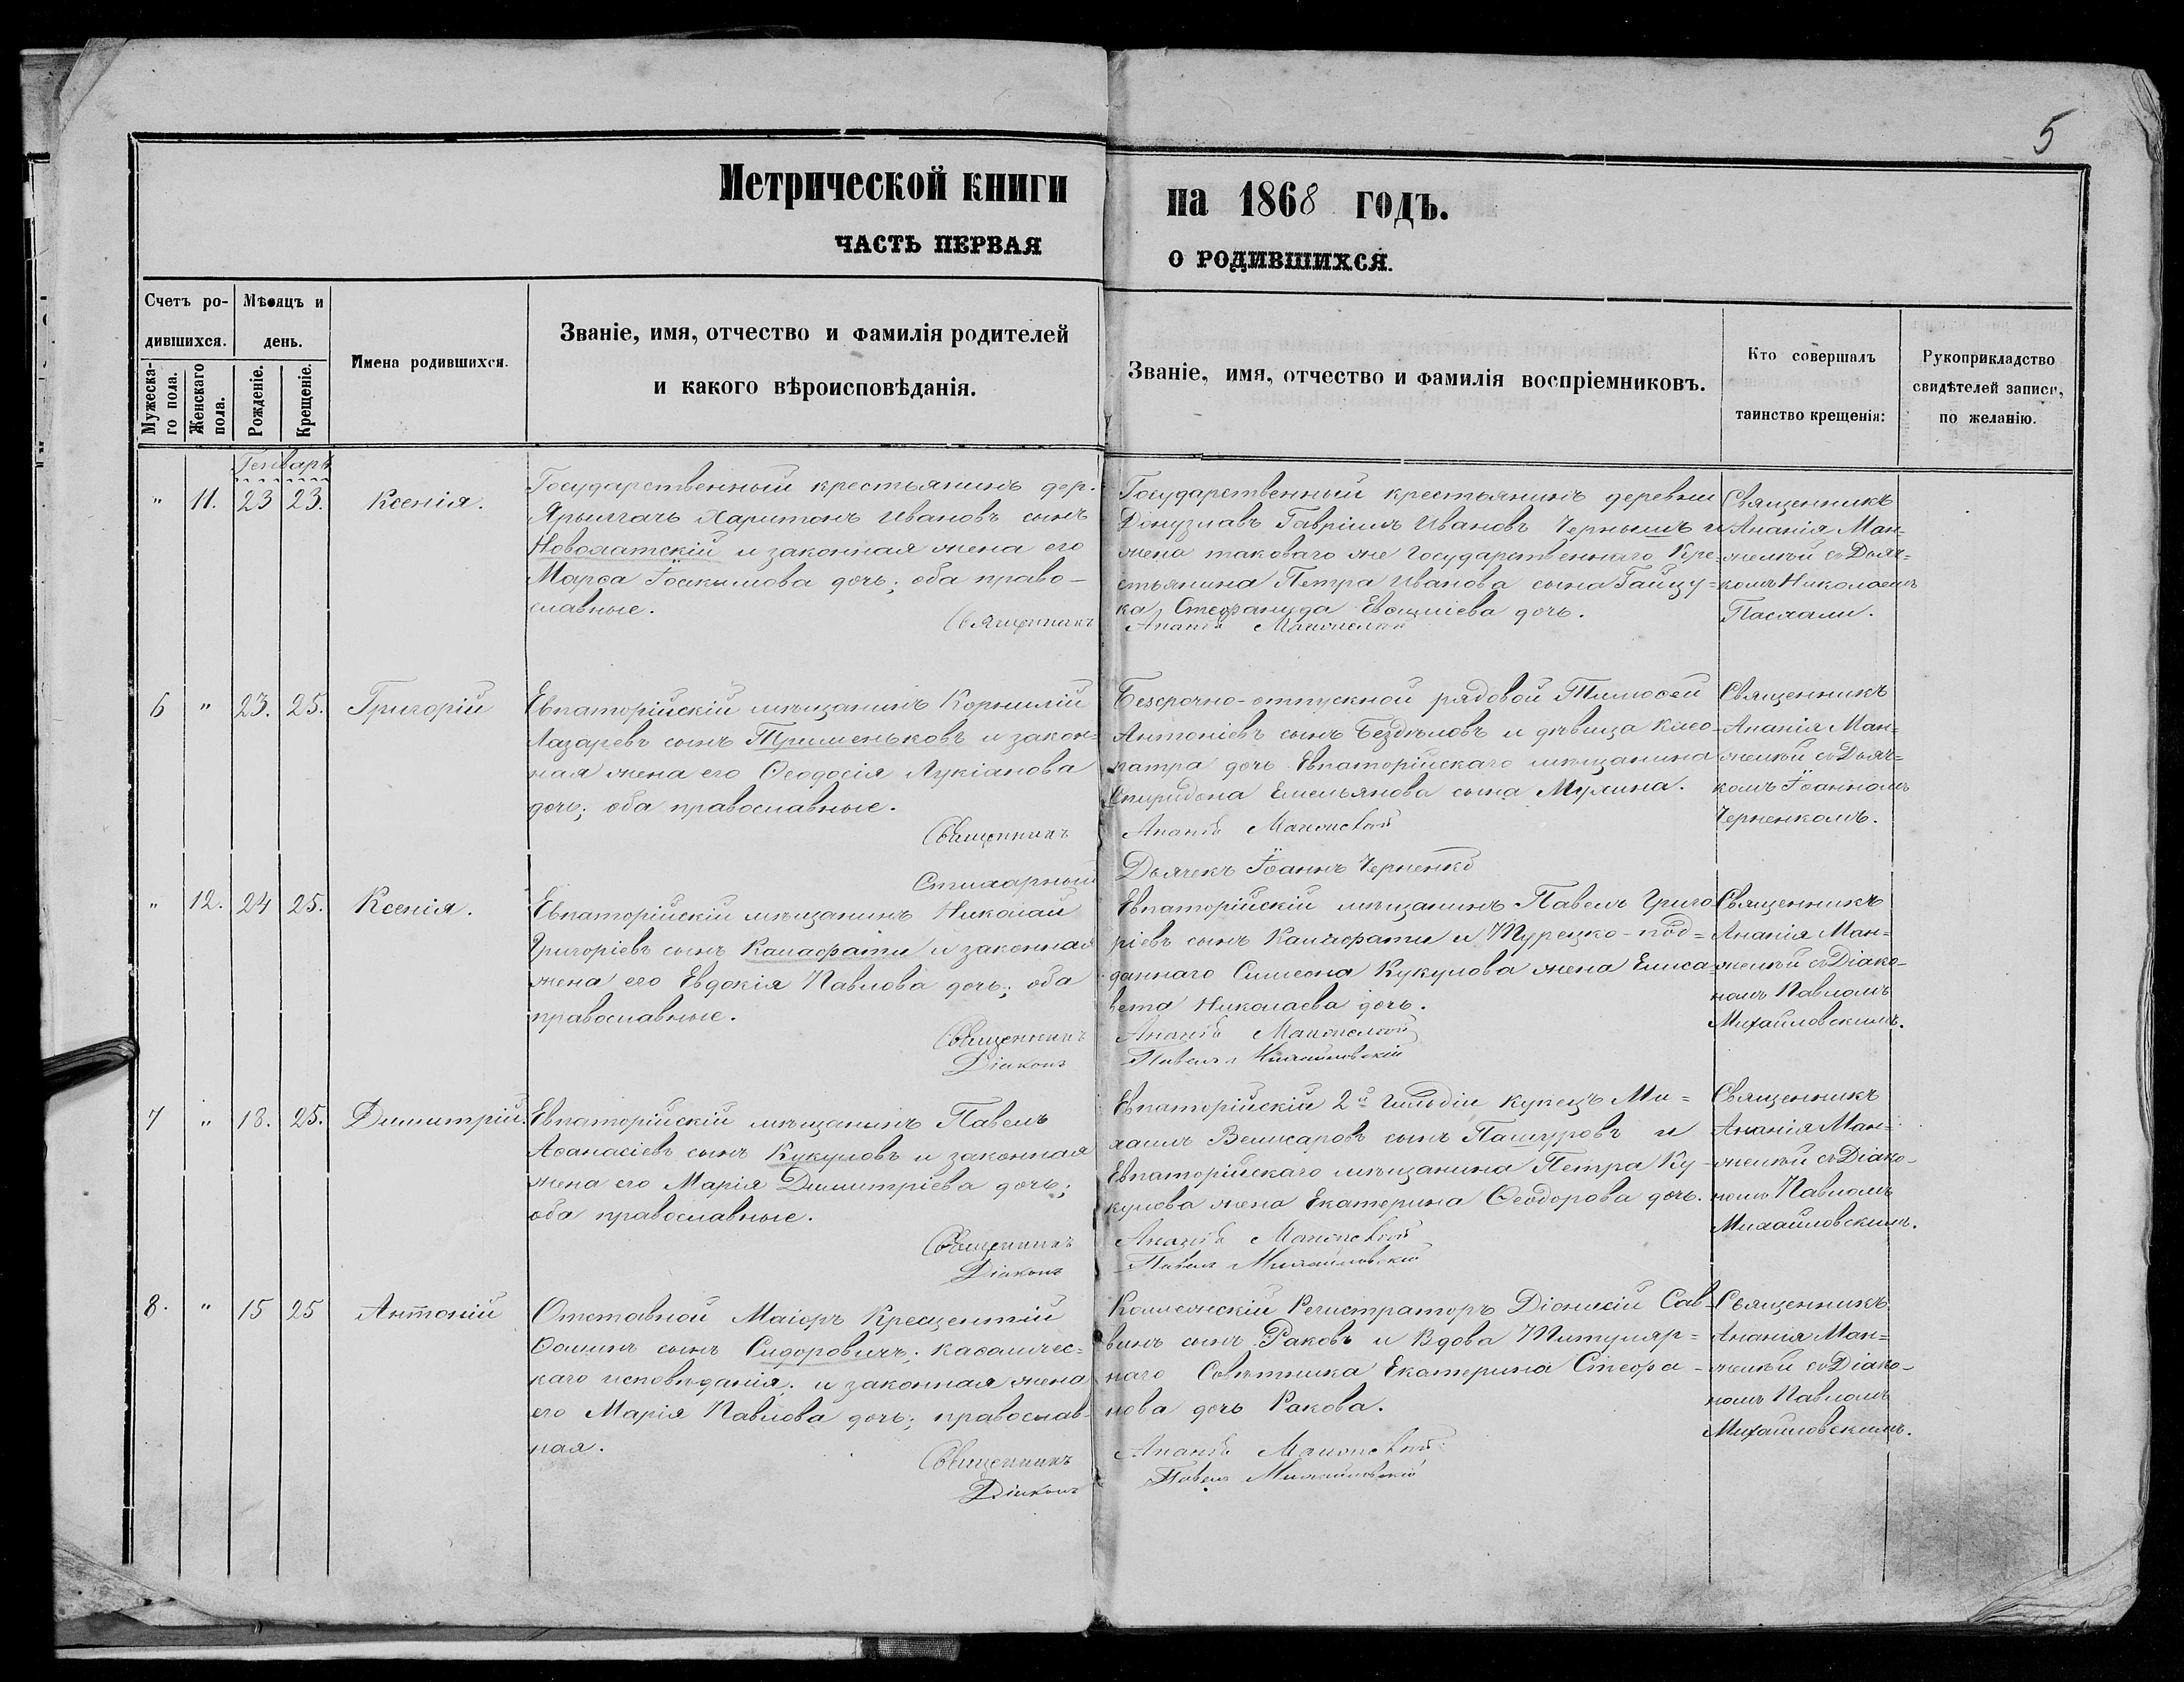 5
Метрической книги на 1868 годъ.
ЧАСТЬ ПЕРВАЯ О РОДИВШИХСЯ.
Счетъ ро-
дившихся.
Мужеска-
го пола.
Женскаго
пола.
Мѣсяцъ и
день.
Рожденіе.
Крещеніе.
Имена родившихся.
Званіе, имя, отчество и фамилія родителей
и какого вѣроисповѣданія.
Званіе, имя, отчество и фамилія воспріемниковъ.
Кто совершалъ
таинство крещенія:
Рукоприкладство
свидѣтелей записи,
по желанію.
Генварь
" 11. 23 23. Ксенія.
Государственный крестьянинъ дер.
Ярылгачъ Харитонъ Ивановъ сынъ
Новохатскій и законная жена его
Марѳа Іоакимова дочь; оба право-
славные.
Священникъ
Государственный крестьянинъ деревни
Донузлавъ Гавріилъ Ивановъ Чернышъ и
жена таковаго же Государственнаго Кре-
стьянина Петра Иванова сына Гайду-
ка, Стефанида Евѳиміева дочь.
Ананій
Священникъ
Ананія Ман-
желѣй съ Дьяч-
комъ Николаемъ
Пасхали.
6 " 23. 25. Григорій
Евпаторійскій мѣщанинъ Корнилій
Лазаревъ сынъ Тришеньковъ и закон-
ная жена его Ѳеодосія Лукіанова
дочь; оба православные.
Священникъ
Стихарный
Безсрочно-отпускной рядовой Тимоѳей
Антоніевъ сынъ Бездѣловъ и дѣвица Клео-
патра дочь Евпаторійскаго мѣщанина
Спиридона Емельянова сына Мулина.
Ананій
Дьячекъ Іоаннъ Черненко
Священникъ
Ананія Ман-
желѣй съ Дьяч-
комъ Іоанномъ
Черненкомъ.
" 12. 24 25. Ксенія.
Евпаторійскій мѣщанинъ Николай
Григоріевъ сынъ Калафати и законная
жена его Евдокія Павлова дочь; оба
православные.
Священникъ
Діаконъ
Евпаторійскій мѣщанинъ Павелъ Григо
ріевъ сынъ Калафати и Турецко-под=
даннаго Симеона Кукулова жена Елиса-
вета Николаева дочь.
Ананій
Павелъ Михайловскій
Священникъ
Ананія Ман=
желѣй съ Діако-
номъ Павломъ
Михайловскимъ.
7 " 18. 25. Димитрій.
Евпаторійскій мѣщанинъ Павелъ
Аѳанасіевъ сынъ Кукуловъ и законная
жена его Марія Димитріева дочь;
оба православные.
Священникъ
Діаконъ
Евпаторійскій 2й гильдіи купецъ Ми=
хаилъ Велисаровъ сынъ Пашуровъ и
Евпаторійскаго мѣщанина Петра Ку-
кулова жена Екатерина Ѳеодорова дочь.
Ананій
Павелъ Михайловскій
Священникъ
Ананія Ман=
желѣй съ Діако-
номъ Павломъ
Михайловскимъ.
8. " 15 25 Антоній
Отставной Маіоръ Кресцентій
Ѳоминъ сынъ Сидоровичъ; каѳоличес=
каго исповѣданія; и законная жена
его Марія Павлова дочь; православ-
ная.
Священникъ
Діаконъ
Коллежскій Регистраторъ Діонисій Сав-
винъ сынъ Раковъ и Вдова Титуляр=
наго Совѣтника Екатерина Стефа-
нова дочь Ракова.
Ананій
Павелъ Михайловскій
Священникъ
Ананія Ман=
желѣй съ Діако-
номъ Павломъ
Михайловскимъ.